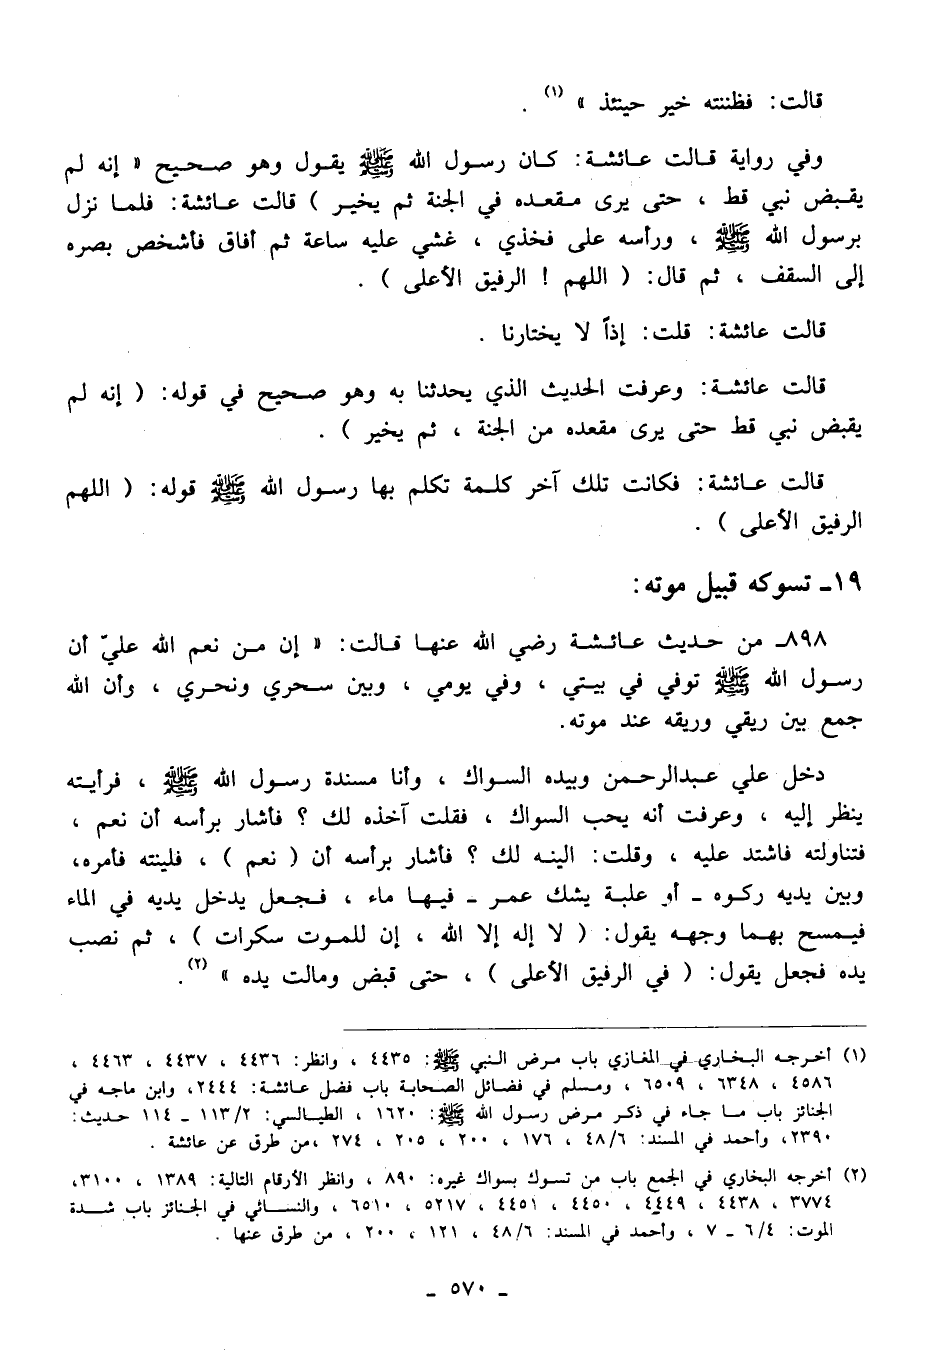 قالت: فظننته خير حينئذ » (١) .
وفي رواية قالت عائشة: كان رسول الله ﷺ يقول وهو صحيح « إنه لم
يقبض نبي قط ، حتى يرى مقعده في الجنة ثم يخير ) قالت عائشة: فلما نزل
برسول الله ﷺ ، ورأسه على فخذي ، غشي عليه ساعة ثم أفاق فأشخص بصره
إلى السقف ، ثم قال: ( اللهم ! الرفيق الأعلى ) .
قالت عائشة: قلت: إذاً لا يختارنا .
قالت عائشة: وعرفت الحديث الذي يحدثنا به وهو صحيح في قوله: ( إنه لم
يقبض نبي قط حتى يرى مقعده من الجنة ، ثم يخير ) .
قالت عائشة: فكانت تلك آخر كلمة تكلم بها رسول الله ﷺ قوله: ( اللهم
الرفيق الأعلى ) .
١٩ـ تسوكه قبيل موته:
٨٩٨ـ من حديث عائشة رضي الله عنها قالت: « إن من نعم الله عليّ أن
رسول الله ﷺ توفي في بيتي ، وفي يومي ، وبين سحري ونحري ، وأن الله
جمع بين ريقي وريقه عند موته.
دخل علي عبدالرحمن وبيده السواك ، وأنا مسندة رسول الله ﷺ ، فرأيته
ينظر إليه ، وعرفت أنه يحب السواك ، فقلت آخذه لك ؟ فأشار برأسه أن نعم ،
فتناولته فاشتد عليه ، وقلت: الينه لك ؟ فأشار برأسه أن ( نعم ) ، فلينته فأمره،
وبين يديه ركوه ـ أو علبة يشك عمر ـ فيها ماء ، فجعل يدخل يديه في الماء
فيمسح بهما وجهه يقول: ( لا إله إلا الله ، إن للموت سكرات ) ، ثم نصب
يده فجعل يقول: ( في الرفيق الأعلى ) ، حتى قبض ومالت يده » (٢).
(١) أخرجه البخاري في المغازي باب مرض النبي ﷺ: ٤٤٣٥ ، وانظر: ٤٤٣٦ ، ٤٤٣٧ ، ٤٤٦٣ ،
٤٥٨٦ ، ٦٣٤٨ ، ٦٥٠٩ ، ومسلم في فضائل الصحابة باب فضل عائشة: ٢٤٤٤، وابن ماجه في
الجنائز باب ما جاء في ذكر مرض رسول الله ﷺ: ١٦٢٠ ، الطيالسي: ١١٣/٢ ـ ١١٤ حديث:
٢٣٩٠، وأحمد في المسند: ٤٨/٦ ، ١٧٦ ، ٢٠٠ ، ٢٠٥ ، ٢٧٤ ،من طرق عن عائشة .
(٢) أخرجه البخاري في الجمع باب من تسوك بسواك غيره: ٨٩٠ ، وانظر الأرقام التالية: ١٣٨٩ ، ٣١٠٠،
٣٧٧٤ ، ٤٤٣٨ ، ٤٤٤٩ ، ٤٤٥٠ ، ٤٤٥١ ، ٥٢١٧ ، ٦٥١٠ ، والنسائي في الجنائز باب شدة
الموت: ٦/٤ ـ ٧ ، وأحمد في المسند: ٤٨/٦ ، ١٢١ ، ٢٠٠ ، من طرق عنها .
ـ ٥٧٠ ـ